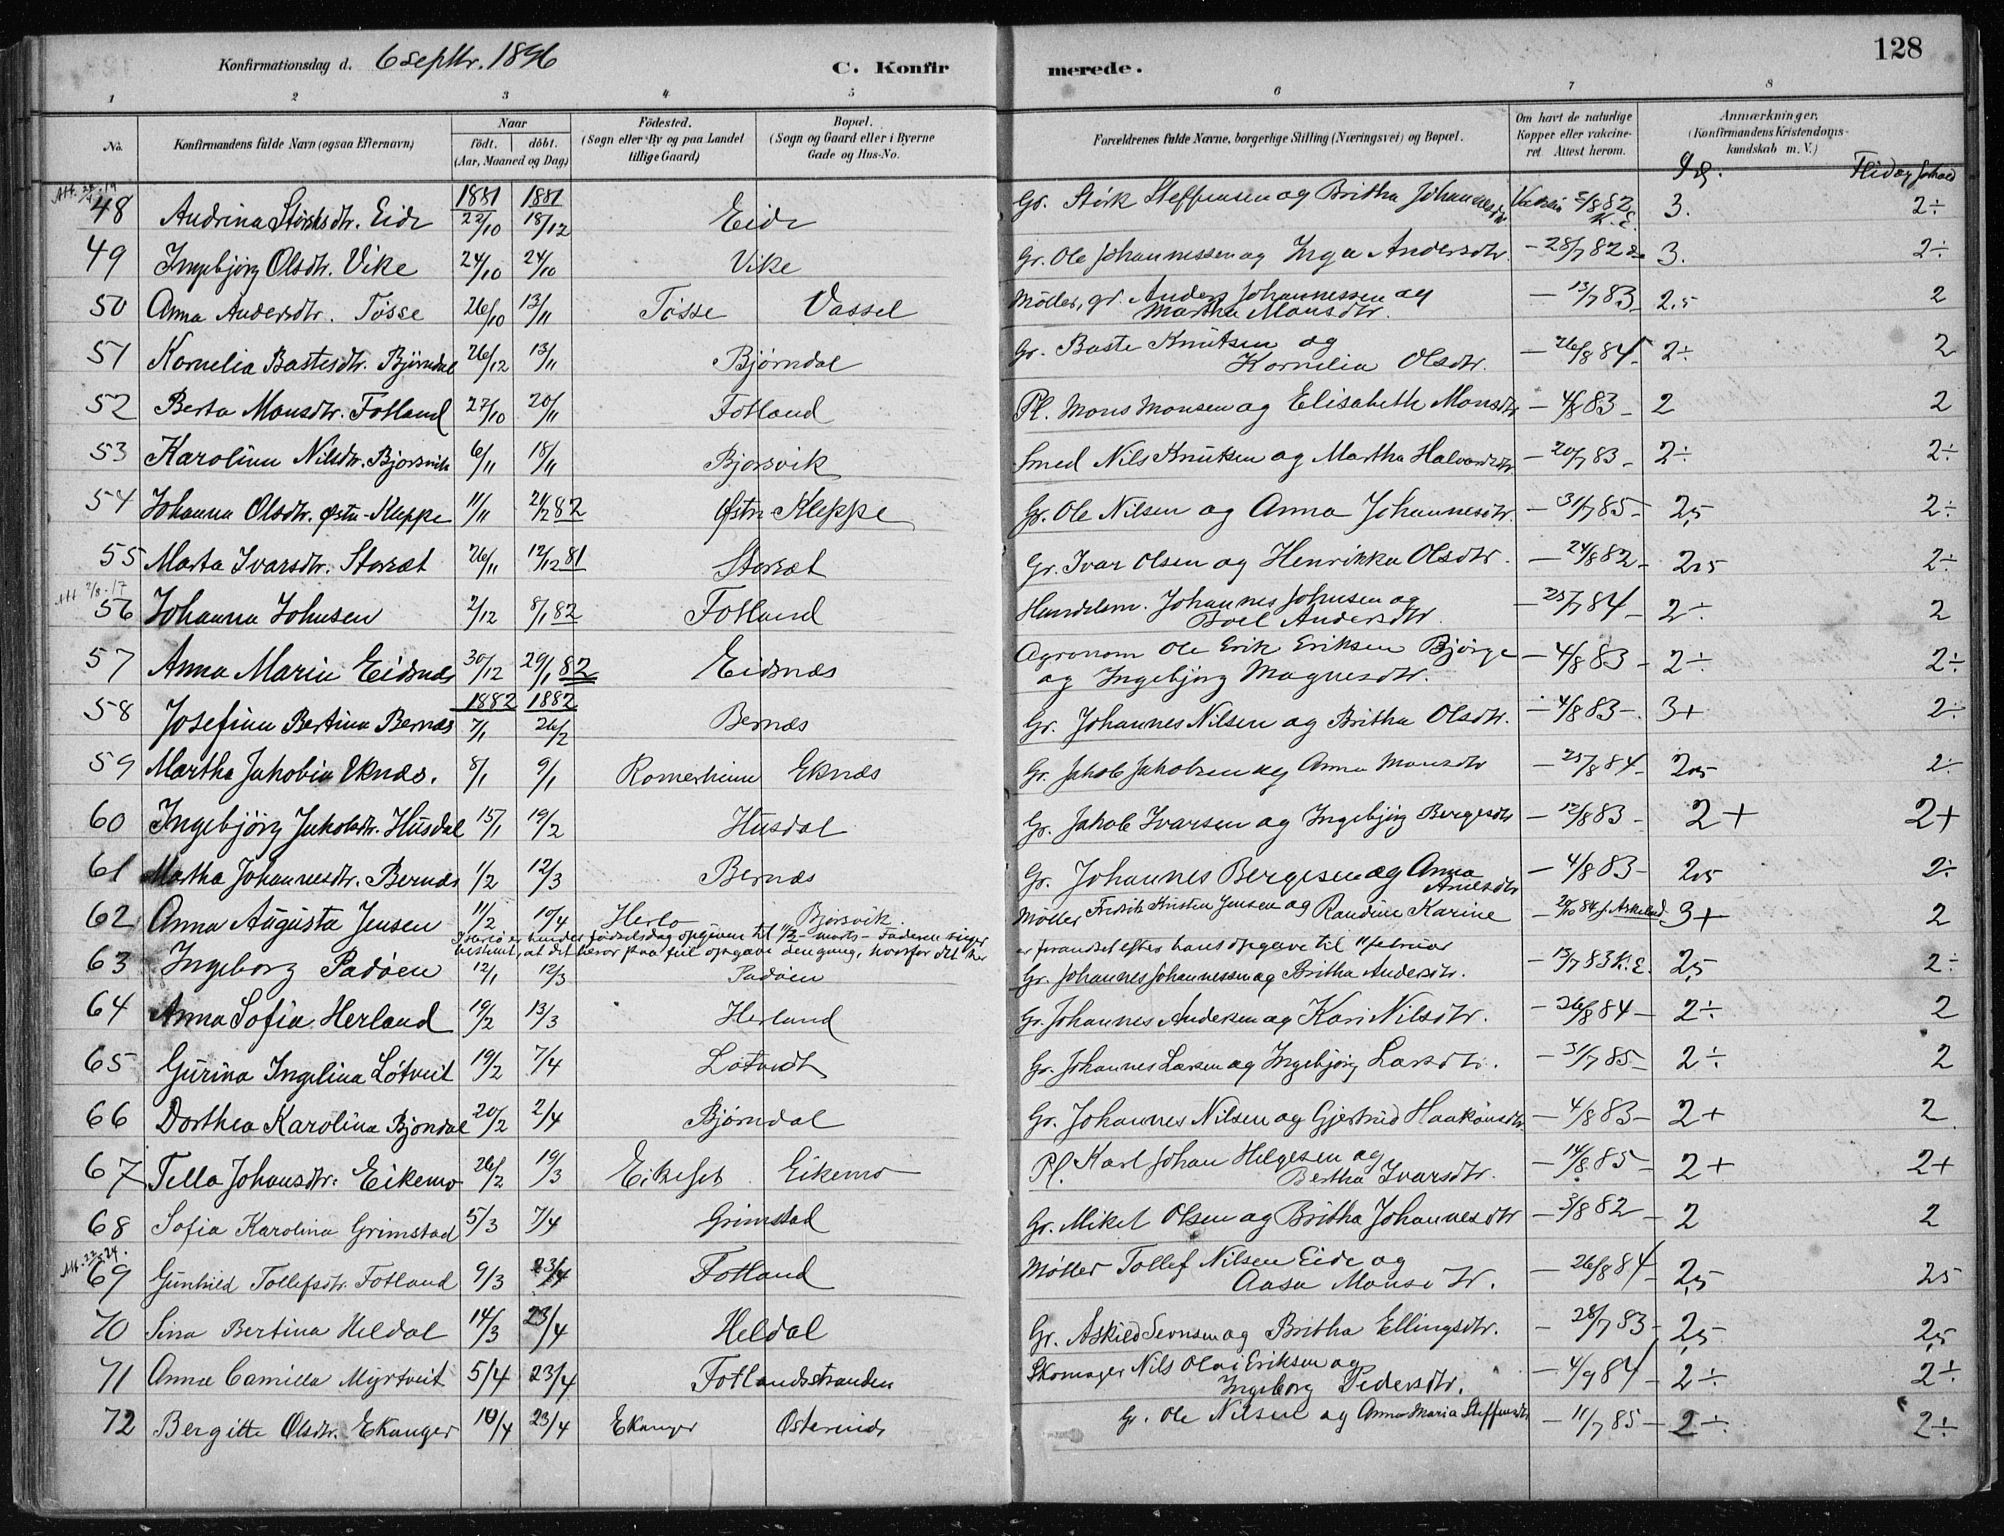 Konfirmationsdag d. 6 septbr. 1896 C. Konfirmerede. 128
1 2 3 4 5 6 7 8
No. Konfirmandens fulde Navn (ogsaa Efternavn) Naar født. døbt. (Aar, Maaned og Dag) Födested. (Sogn eller By og paa Landet tillige Gaard) Bopæl. (Sogn og Gaard eller i Byerne Gade og Hus-No. Forældrenes fulde Navne, borgerlige Stilling (Næringsvei) og Bopæl. Om havt de naturlige Kopper eller vakcineret Attest herom. Anmærkninger, (Konfirmandens Kristendomskundskab m. V.)
Flid og Forhold
1881 1881
48 Andrina Størksdtr. Eide 22/10 18/12 Eide Gr. Størk Steffensen og Britha Johannesdtr Vaksin 5/8 82 K.E. 3. 2÷
49 Ingebjørg Olsdtr. Vike 24/10 24/10 Vike Gr. Ole Johannessen og Inga Andersdtr. — 28/7 82 3. 2÷
50 Anna Andersdtr. Tøsse 26/10 13/11 Tøsse Vassel Møller, gr. Anders Johannessen og Martha Monsdtr. — 13/7 83 2.5 2
51 Kornelia Bastesdtr. Bjørndal 26/12 13/11 Bjørndal Gr. Baste Knutsen og Kornelia Olsdtr. — 26/8 84 2÷ 2
52 Berta Monsdtr. Fotland 27/10 20/11 Fotland Pl. Mons Monsen og Elisabeth Monsdtr — 4/8 83 — 2 2
53 Karolina Nilsdtr. Bjorsvik 6/11 18/11 Bjorsvik Smed Nils Knutsen og Martha Halvardsdtr — 20/7 83 — 2÷ 2÷
54 Johanna Olsdtr. østre-Kleppe 11/11 21/2 82 Østre Kleppe Gr. Ole Nilsen og Anna Johannesdtr. — 31/7 85 — 2,5 2÷
55 Marta Ivarsdtr. Storset 26/11 12/12 81 Storset Gr. Ivar Olsen og Henrikka Olsdtr. — 24/8 82 — 2,5 2÷
Att 7/8-17
56 Johanna Johnsen 2/12 8/1 82 Fotland Handelsm. Johannes Johnsen og Boel Andersdtr. — 25/7 84 — 2÷ 2
57 Anna Maria Eidsnæs 30/12 29/1 82 Eidsnæs Agronom Ole Erik Eriksen Bjørge og Ingebjørg Magnesdtr. — 4/8 83 — 2÷ 2÷
1882 1882
58 Josefina Bertina Bernæs 7/1 26/2 Bernæs Gr. Johannes Nilsen og Britha Olsdtr. — 4/8 83 — 3+ 2÷
59 Martha Jakobia Eknæs. 8/1 9/1 Romerheim Eknæs Gr. Jakob Jakobsen og Anna Monsdtr — 25/8 84 — 2,5 2÷
60 Ingebjörg Jakobsdtr. Husdal 15/1 19/2 Husdal Gr. Jakob Ivarsen og Ingebjörg Bergesdtr — 12/8 83 — 2+ 2+
61 Martha Johannesdtr. Bernæs 1/2 12/3 Bernæs Gr. Johannes Bergesen og Anna Arnesdtr — 4/8 83 — 2,5 2÷
62 Anna Augusta Jensen 11/2 10/4 Herlo Bjorsvik Møller Fredrik Kristen Jensen og Randine Karine — 20/10 84 f. Askeland 3+ 2
I Herlö er hendes fødselsdag opgiven til 1/2 marts — Faderen siger er forandret efter hans opgave til 11 februar
bestemt, at det beror paa feil opgave dengang, hvorfor det her
63 Ingeborg Padøen 12/1 12/3 Padøen Gr. Johannes Johannessen og Britha Andersdtr. — 13/7 83 K.E. 2,5 2÷
64 Anna Sofia Herland 19/2 13/3 Herland Gr. Johannes Andersen og Kari Nilsdtr. — 26/8 84 — 2÷ 2
65 Gurina Ingelina Løtveit 19/2 7/4 Løtveit Gr. Johannes Larsen og Ingebjörg Larsdtr. — 31/7 85 — 2÷ 2
66 Dorthea Karolina Bjondal 20/2 2/4 Bjørndal Gr. Johannes Nilsen og Gjertrud Haakonsdtr — 4/8 83 — 2+ 2
67 Tella Johansdtr. Eikemo 26/2 19/3 Eikeset Eikemo Pl. Karl Johan Helgesen og Bertha Ivarsdtr. — 14/8 85 — 2+ 2+
68 Sofia Karolina Grimstad 5/3 7/4 Grimstad Gr. Mikel Olsen og Britha Johannesdtr — 3/8 82 — 2 2
69 Gunhild Tollefsdtr. Fotland 9/3 23/4 Fotland Møller Tollef Nilsen Eide og Aasa Monsdtr. — 26/8 84 — 2,5 2,5
70 Sina Bertina Heldal 14/3 23/4 Heldal Gr. Askild Sevnsen og Britha Ellingsdtr. — 28/7 83 — 2,5 2,5
71 Anna Camilla Myrtveit 5/4 23/4 Fotlandsstranden Skomager Nils Olai Eriksen og Ingeborg Pedersdtr. — 4/9 84 — 2÷ 2÷
72 Bergitte Olsdtr. Ekanger 10/4 23/4 Ekanger Østereide Gr. Ole Nilsen og Anna Maria Steffensdtr — 11/7 85 — 2÷ 2÷